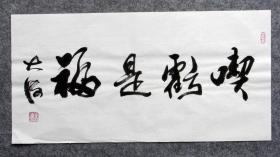 喫虧是福